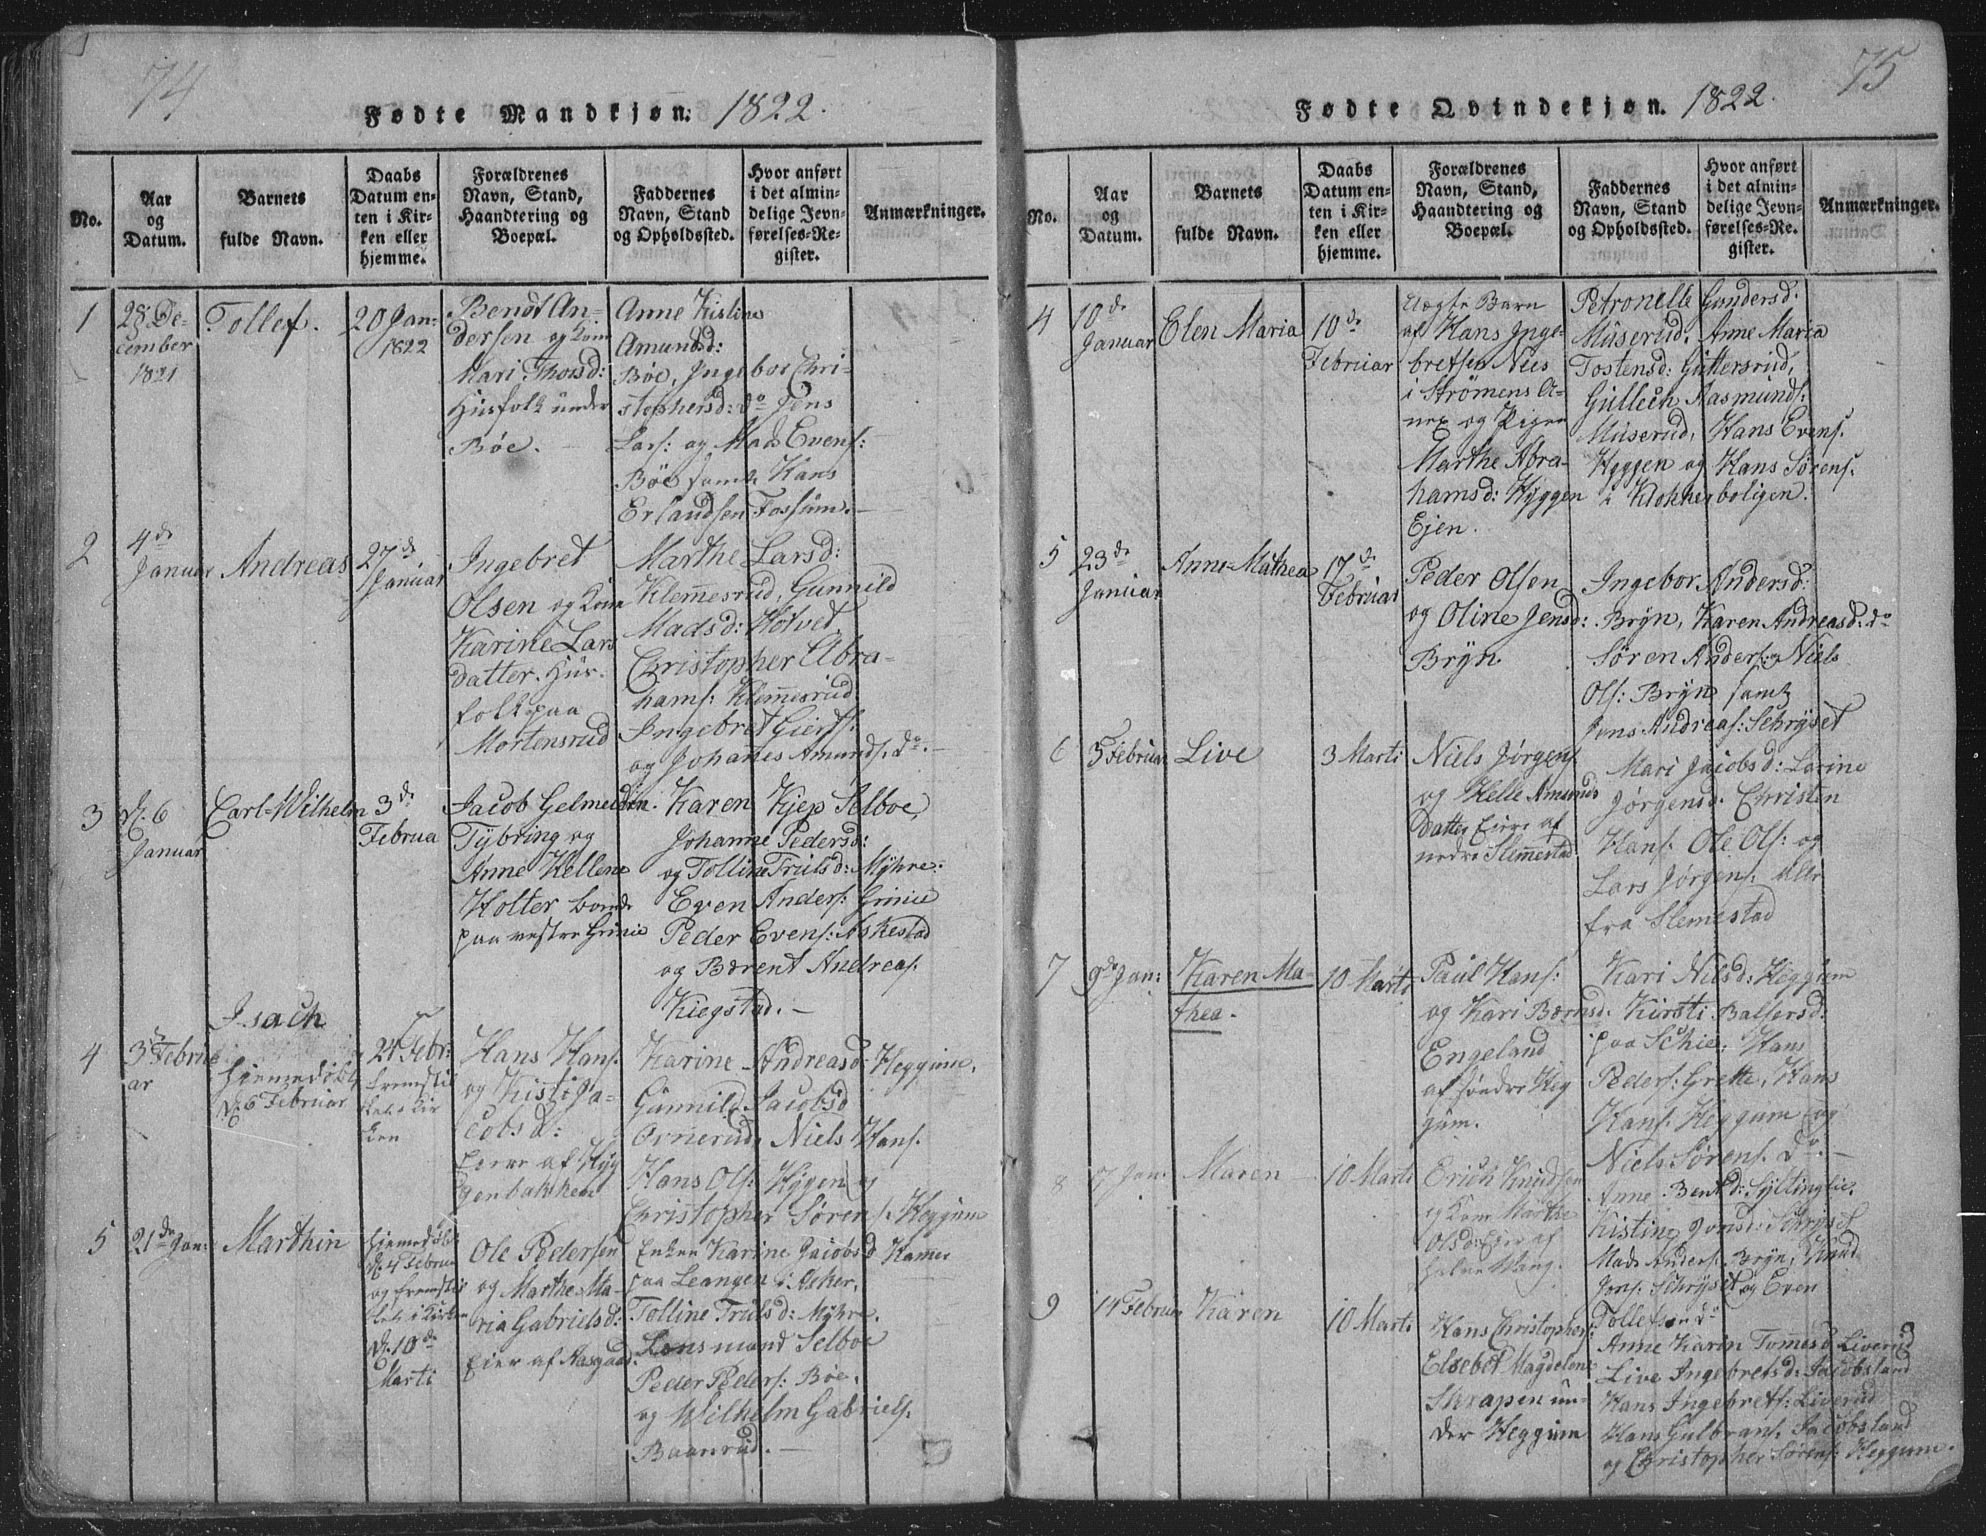 74
Fødte Mandkjøn. 1822.
No.
Aar og Datum.
Barnets fulde Navn.
Daabs Datum enten i Kirken eller hjemme.
Forældrenes Navn, Stand, Haandtering og Boepæl.
Faddernes Navn, Stand og Opholdssted.
Hvor anført i det almindelige Jevnførelses-Register.
Anmærkninger.
1
28 December
1821
Tollef.
20 Jan:
1822
Bendt An-
dersen og Kone
Mari Thorsd:
Huusfolk under
Bøe.
Anne Kistine
Amundsd:
Bøe, Ingebor Chri-
stophersd: do Jens
Lars: og Mads Evens:
Bøe samt Hans
Erlandsen Fossum.
2
4de
Januar
Andreas
27de
Januar
Ingebret
Olsen og Kone
Karine Lars
datter. Huus-
folk paa
Mortensrud
Marthe Larsd:
Klemmesrud, Gunnild
Madsd: Hotvet
Christopher Abra-
hams: Klemmesrud
Ingebret Giers:
og Johanes Amunds. do.
3
d. 6
Januar
Carl Wilhelm
3de
Februa
Jacob Gelmeiden
Tybring og
Anne Hellene
Holter bonde
paa vestre Grinie
Karen Kjep Selboe,
Johanne Pedersd:
og Tolline Trulsd: Myhre.
Even Anders: Grinie
Peder Evens: Askestad
og Bærent Andreas.
Kiegstad.
4
3 Februar
Isach
hjemedøbt
d. 6 Februar
24 Febr:
fremstil
let i Kir
ken
Hans Hans.
og Kisti Ja-
cobsd:
Eiere af Hyg
genbakken
Karine Andreasd: Heggum.
Gunnild Jacobsd
Ornerud, Niels Hans.
Hans Ols: Hygen og
Christopher Sørens. Heggum
5
21de Jan:
Marthin
hjemedøbt
d. 4 Februar
og fremstil
let i Kirken
d. 10de
Marti
Ole Pedersen
og Marthe Ma-
ria Gabrielsd:
Eier af Aasgaad.
Enken Karine Jacobsd Hamer
paa Leangen i Asker,
Tolline Trulsd: Myhre.
Lensmand Selboe
Peder Peders: Bøe,
og Wilhelm Gabriels.
Baanrud.
75
Fødte Qvindekjøn. 1822.
No.
Aar og Datum.
Barnets fulde Navn.
Daabs Datum enten i Kirken eller hjemme.
Forældrenes Navn, Stand, Haandtering og Boepæl.
Faddernes Navn, Stand og Opholdssted.
Hvor anført i det almindelige Jevnførelses-Register.
Anmærkninger.
4
10de
Januar
Elen Maria
10de
Februar
Uægte Barn
af Hans Inge-
bretsen Næs
i Strömens A-
nex og Pigen
Marthe Abra-
hamsd: Hyggen
Ejen.
Petronelle Gundersd:
Muserud, Anne Maria
Tostensd: Guttersrud,
Gullech Aasmunds:
Muserud, Hans Evens.
Hyggen og Hans Sørens.
i Klokkerboligen.
5
23de
Januar
Anne Mathea
17de
Februar
Peder Olsen
og Oline Jensd:
Bryn
Ingebor Andersd:
Bryn, Karen Andreasd: do
Søren Anders: Niels
Ols: Bryn samt
Jens Andreas: Schryset
6
5 Februar
Live
3 Marti
Niels Jørgens.
og Helle Amunds
datter Eiere af
nedre Slemmestad
Mari Jacobsd: Larine
Jørgensd: Christen
Hans. Ole Ols: og
Lars Jørgens: alle
fra Slemestad
7
9de Jan:
Karen Ma-
thea.
10 Marti
Paul Hans:
og Kari Bærnsd:
Engeland
af søndre Heg
gum.
Kari Nilsd: Heggum
Kirsti Balsersd:
paa Schie: Hans
Peders: Grette, Hans
Hans. Heggum og
Niels Sørens. do.
8
17 Jan:
Maren
10 Marti
Erich Knudsen
og Kone Marthe
Olsd: Eier af
Wang.
Anne Bentsd: Syllinglie.
Kistine Jonsd: Schryset
Mads Anders. Bryn, Knud
Jons. Schryset og Even
Tollefsen do
9
14 Februar
Karen
10 Marti
Hans Christophers:
Elsebet Magdelene
Skrapen un-
der Heggum
Anne Karin Tomesd Liverud
Live Ingebretsd: Jacobsland
Hans Ingebrets: Liverud
Hans Gulbrans. Jacobsland
og Christopher Sørens: Heggum.